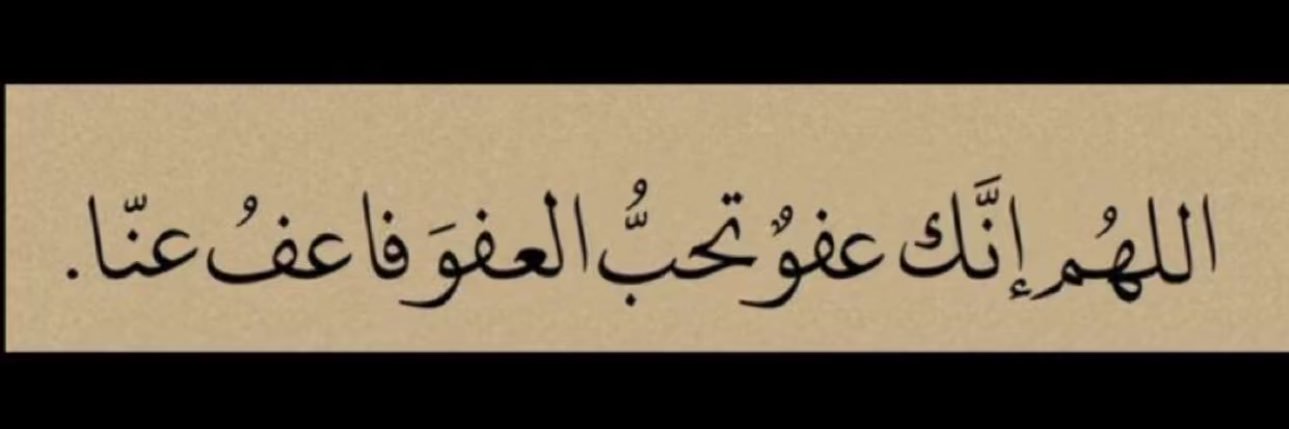 اللهُم إنَّك عفوٌ تحبُّ العفوَ فاعفُ عنّا.